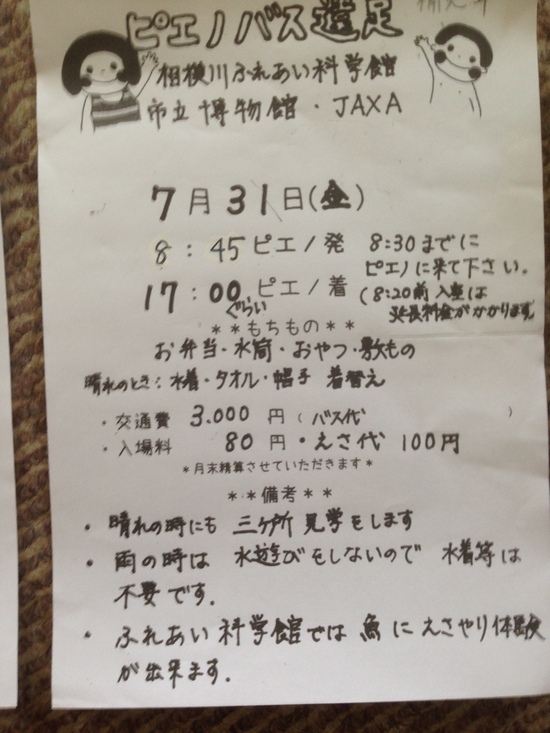 ピエノバス遠足
相模川ふれあい科学館
市立博物館・JAXA
7月31日(金)
8:45ピエノ発 8:30までに
ピエノに来て下さい。
17:00ピエノ着 (8:20前入室は
ぐらい 延長料金がかかります。
**もちもの**
お弁当・水筒・おやつ・敷もの
晴れのとき:水着・タオル・帽子 着替え
・交通費 3.000円(バス代 )
・入場料 80円・えさ代 100円
*月末精算させていただきます*
**備考**
・晴れの時にも 三ケ所 見学をします
・雨の時は 水遊びをしないので 水着等は
不要です.
・ふれあい科学館では 魚に えさやり体験
が出来ます.